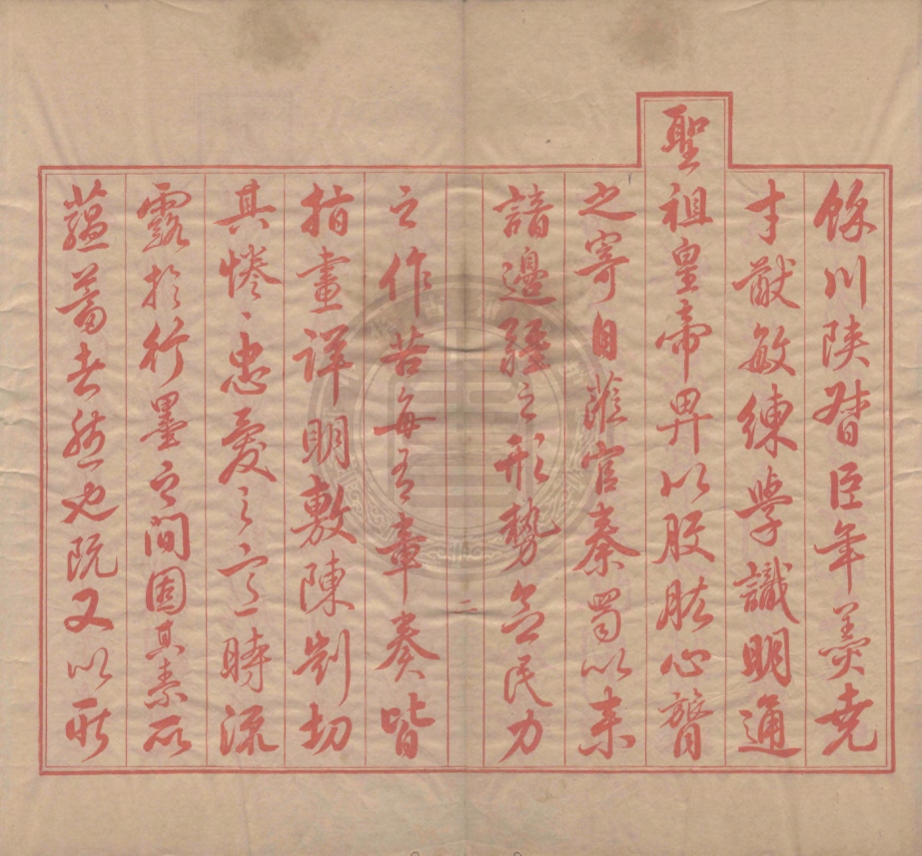 餘川陝督臣年羹堯
才猷敏練學識明通
聖祖皇帝畀以股肱心膂
之寄自蒞官秦蜀以來
諳邊疆之形勢念民力
二
之作苦每有章奏皆
指畫詳明敷陳剴切
其惓〻忠愛之意時流
露於行墨之間固其素所
蘊蓄者然也既又以所